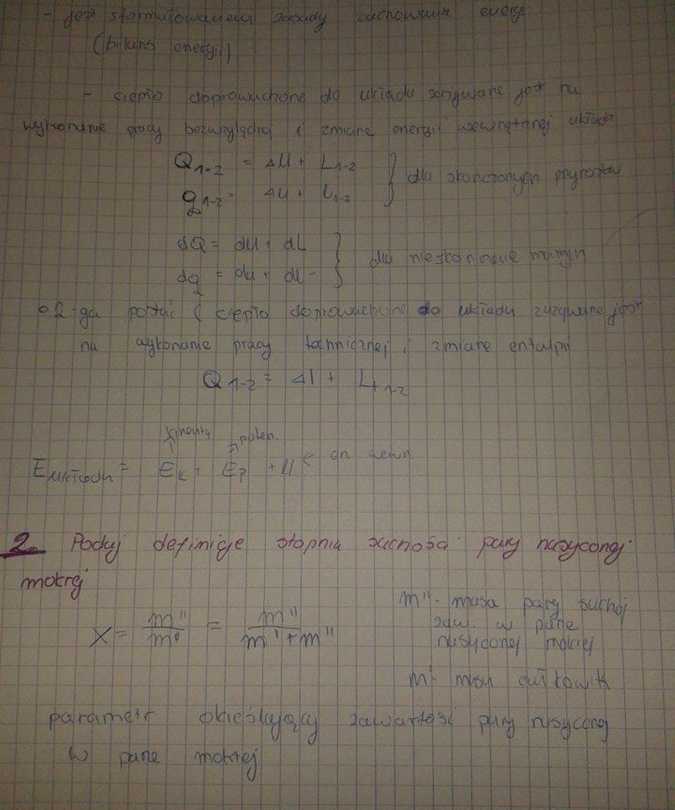 - jest sformułowaniem zasady zachowania energii
(bilans energii)
- ciepło doprowadzone do układu zużywane jest na
wykonanie pracy bezwzględnej i zmianę energii wewnętrznej układu
Q1-2 = ΔU + L1-2 } dla skończonych przyrostów
q1-2 = Δu + l1-2
dQ = dU + dL } dla nieskończenie małych
dq = du + dl
o 2-ga postać ( ciepło doprowadzone do układu zużywane jest
na wykonanie pracy technicznej i zmianę entalpii
Q1-2 = ΔI + Lt1-2
kinetyczna poten.
Eukładu = Ek + Ep + U < en wewn
2. Podaj definicję stopnia suchości pary nasyconej
mokrej
X = m''/m = m''/m'+m''
m'' - masa pary suchej
zaw. w parze
nasyconej mokrej
m - masa całkowit
parametr określający zawartość pary nasyconej
w parze mokrej